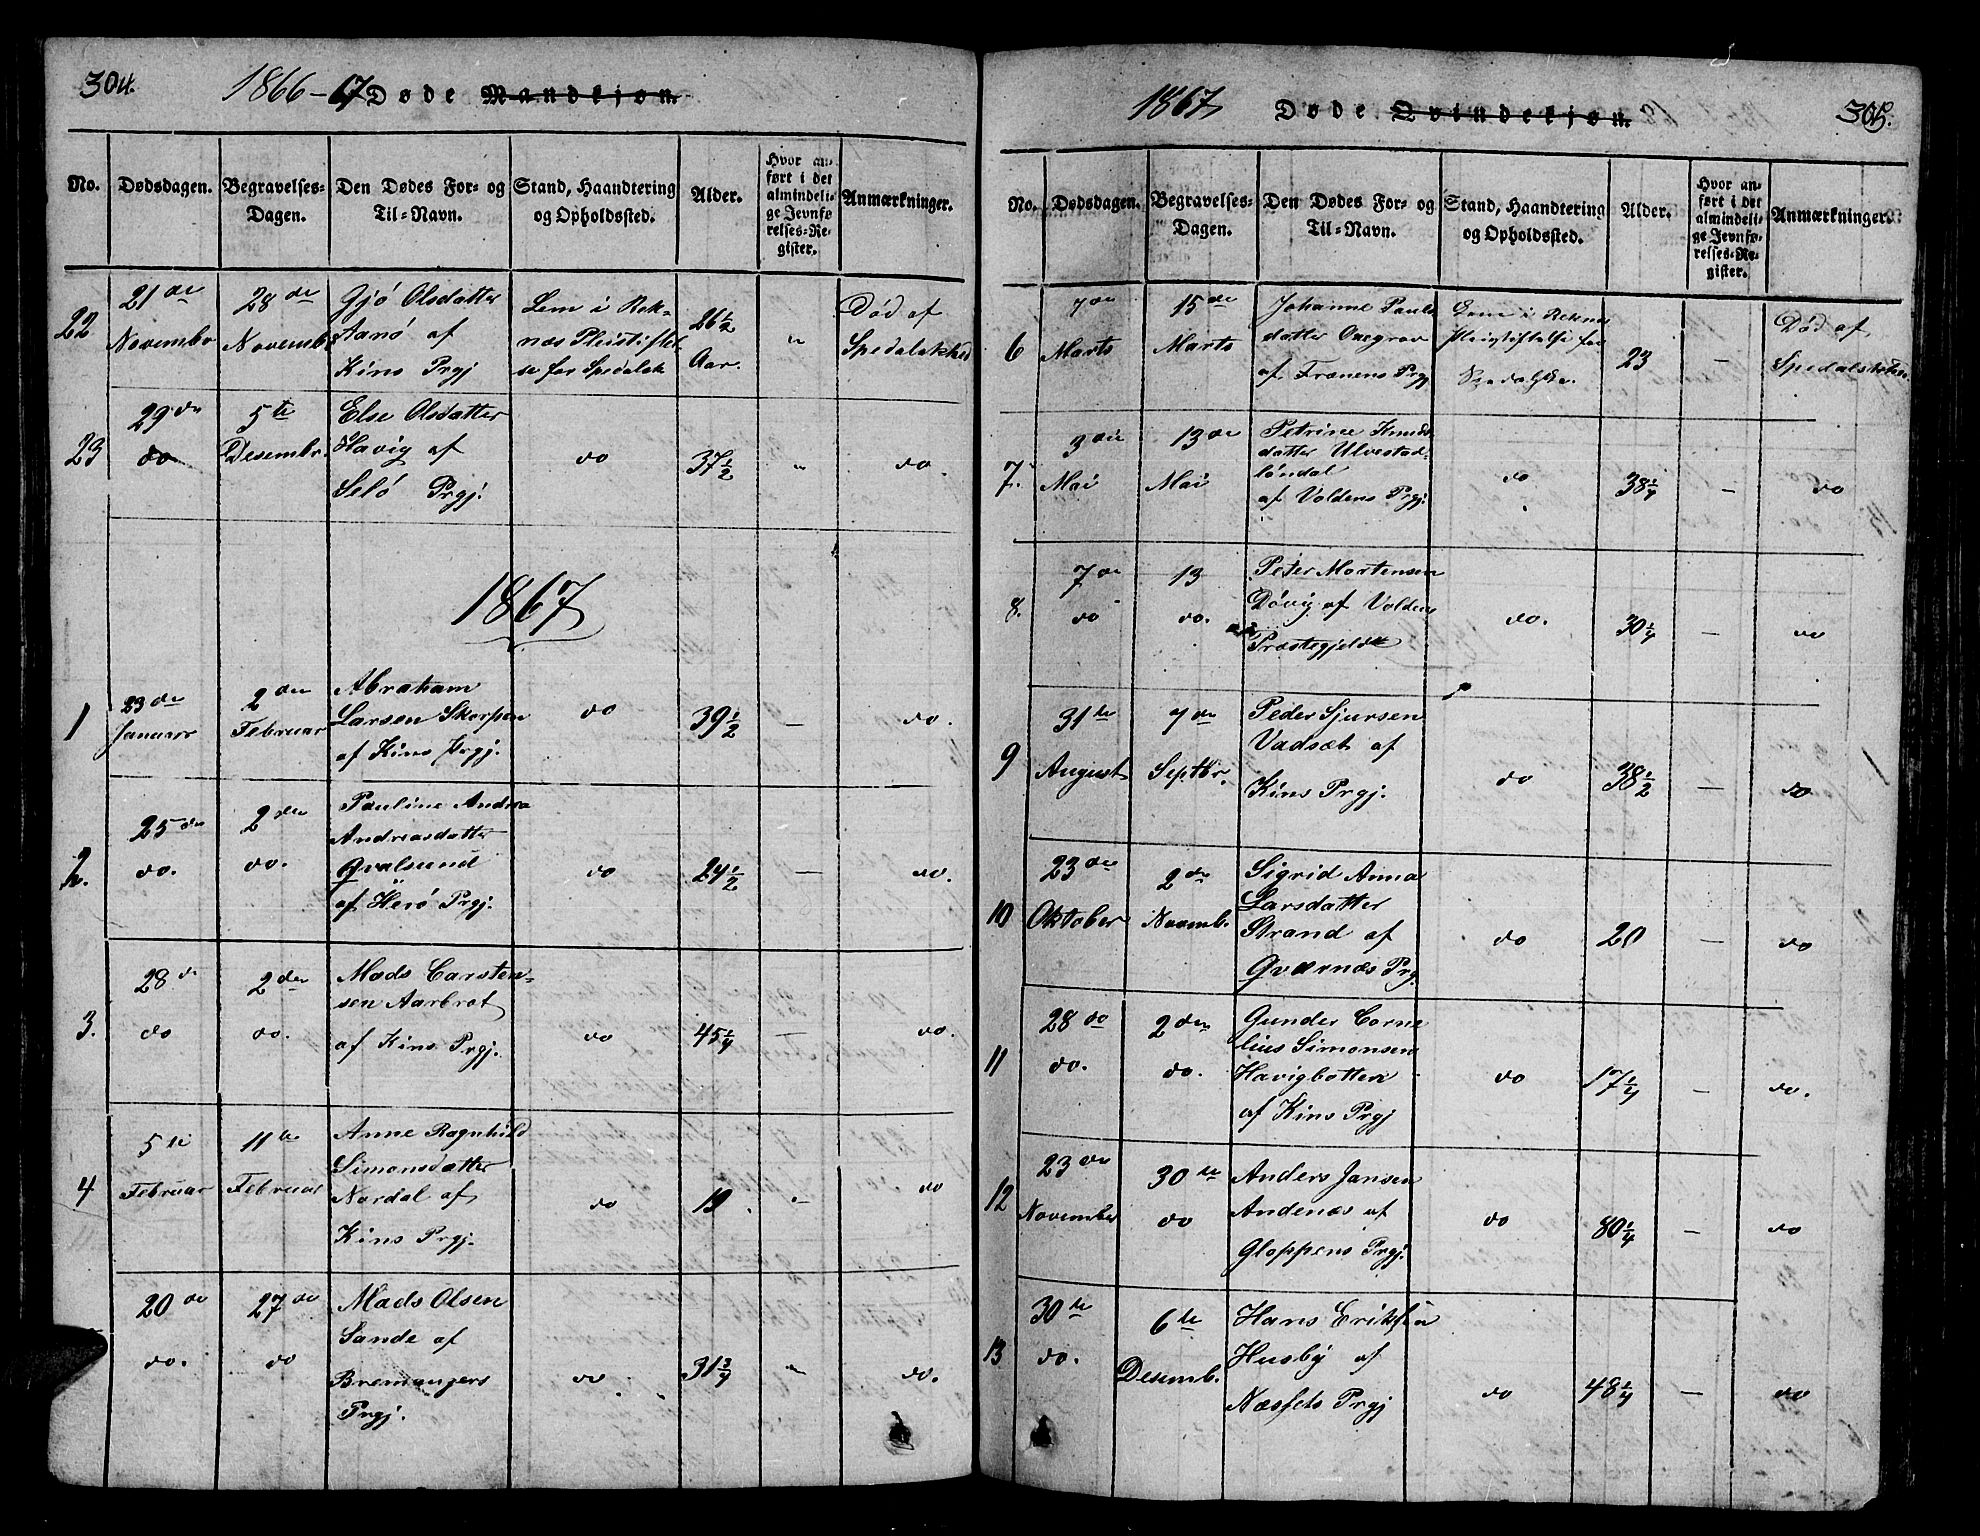 304.
1866-67 Døde Mandkjøn.
No.
Dødsdagen.
Begravelses-
Dagen.
Den Dødes For- og
Til-Navn.
Stand, Haandtering
og Opholdssted.
Alder.
Hvor an-
ført i det
almindeli-
ge Jevnfø
relses-Re-
gister.
Anmærkninger.
22
21de
November
28de
Novemb
Gjø Olsdatter
Aanø af
Kins Prgj
Lem i Rek-
næs Pleistiftel-
se for Spedalsk
26½
Aar.
"
Død af
Spedalskhed
23
29de
do
5te
Desembr.
Else Olsdatter
Havig af
Selø Prgj.
do
37½
"
do.
1867
1
23de
Januar
2den
Februar
Abraham
Larsen Skorpen
af Kins Prgj.
do
39½
—
do.
2.
25de
do.
2den
do.
Pauline Andrea
Andreasdatter
Qvalsund
af Herø Prgj.
do
24½
—
do.
3.
28de
do
2den
do.
Mads Carsten-
sen Aarbrot
af Kins Prgj.
do
45¼
—
do.
4
5te
Februar
11te
Februar
Anne Ragnhild
Simonsdatter
Nordal af
Kins Prgj.
do
19
"
do
20de
do.
27de
do
Mads Olsen
Sande af
Bremangers
Prgj.
do.
31¾
"
do.
1867
Døde Qvindekjøn.
305.
No.
Dødsdagen.
Begravelses-
Dagen.
Den Dødes For- og
Til-Navn.
Stand, Haandtering
og Opholdssted.
Alder.
Hvor an-
ført i det
almindeli-
ge Jevnfø-
relses-Re-
gister.
Anmærkninger.
6
7de
Marts
15de
Marts
Johanne Pauls
datter
af Frænens Prgj
Lem i Reknæs
Pleistiftelse for
Spedalske.
23
—
Død af
Spedalskhed
7.
3die
Mai
13de
Mai
Petrine Knuds
datter Ulvestad-
løndal
af Voldens Prgj.
do
38¼
—
do
8.
7de
do
13
do.
Peter Mortensen
Døvig af Voldens
Præstegjeld
do.
30¼
—
do
9
31te
August
7de
Septbr.
Peder Sjursen
Vadsæt af
Kins Prgj.
do
38½
—
do
10
23de
Oktober
2den
Novemb.
Sigrid Anna
Larsdatter
Strand af
Qværnæs Prg.
do
20
—
do
11
28do
do.
2den
do.
Gunder Corne
lius Simonsen
Havigbotten
af Kins Prgj
do
17¼
—
do.
12
23de
November
30te
do
Anders Jansen
Andenæs af
Gloppens Prgj.
do
80¼
—
do
13
30te
do.
6te
Desemb.
Hans Eriksen
Husby af
Næssets Prgj
do
48¼
—
do